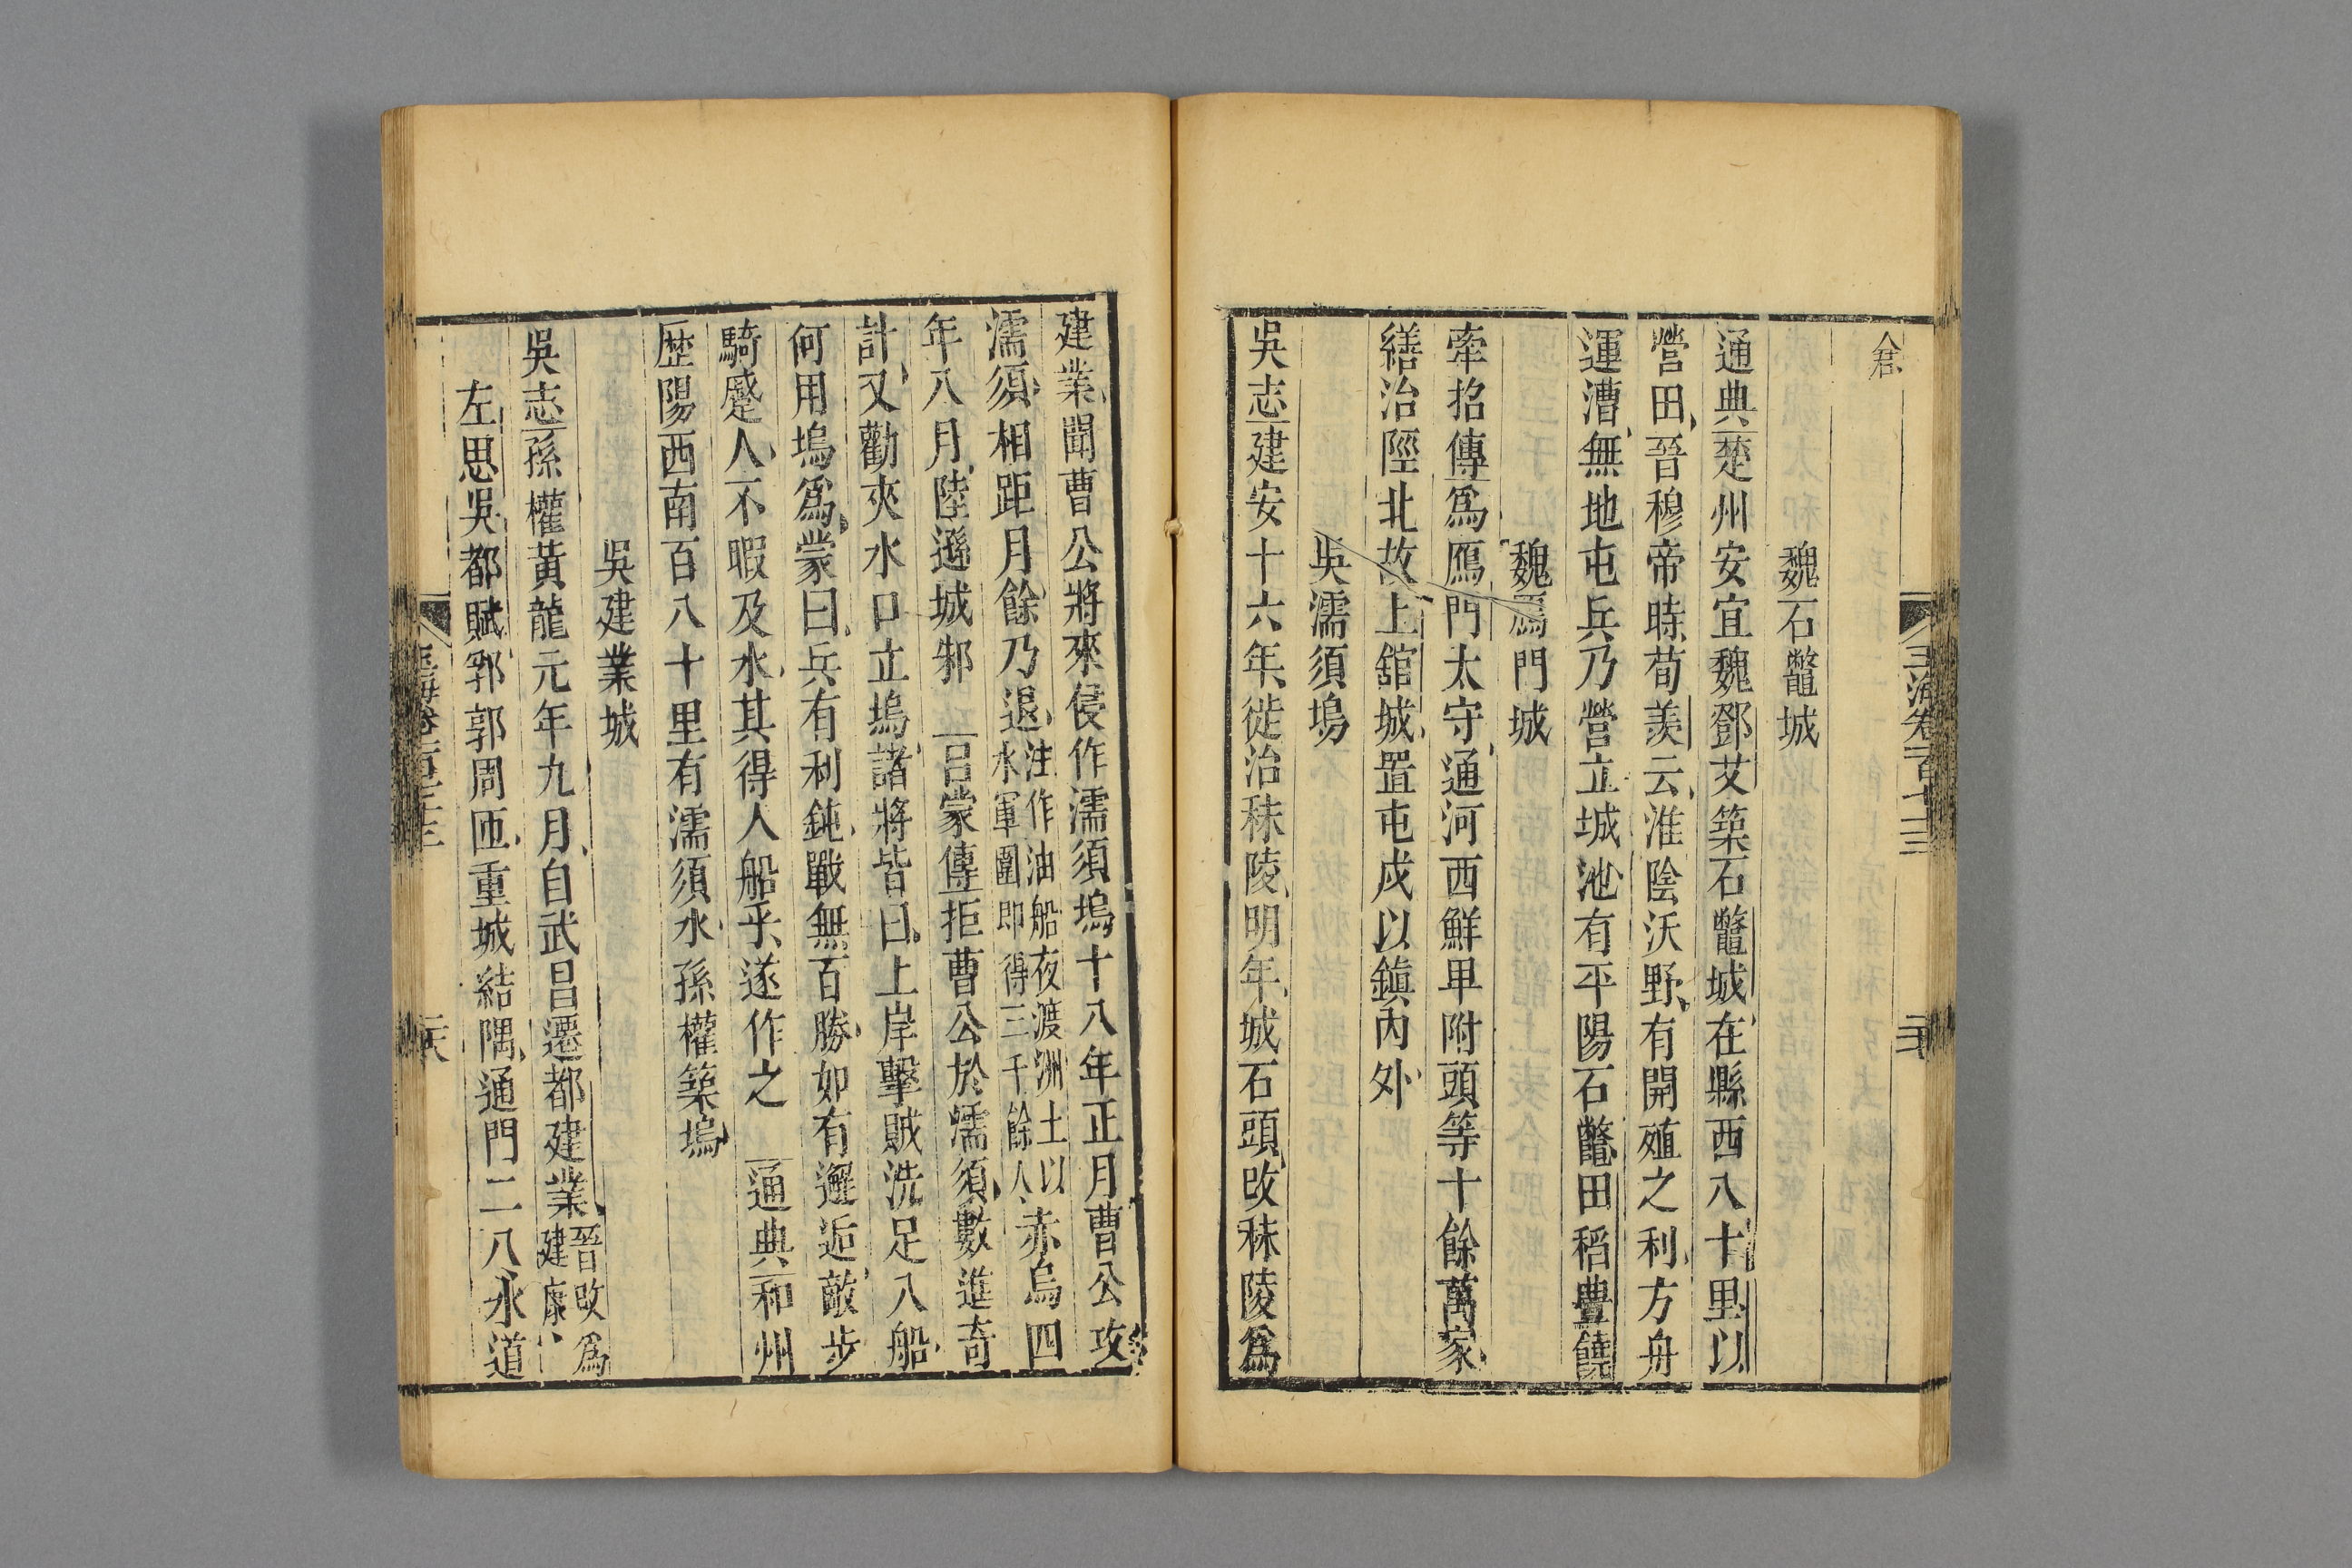 魏石鼈城
通典楚州安宜魏鄧艾築石鼈城在縣西八十里以
營田晉穆帝時荀羨云淮陰沃野有開殖之利方舟
運漕無地屯兵乃營立城池有平陽石鼈田稻豊饒
魏鴈門城
牽招傳爲鴈門太守通河西鮮卑附頭等十餘萬家
繕治陘北故上舘城置屯戍以鎭內外
吳濡須塢
吳志建安十六年徙治秣陵明年城石頭改秣陵爲
玉海卷一百七十三
建業聞曹公將來侵作濡須塢十八年正月曹公攻
濡須相距月餘乃退注作油船夜渡洲土以水軍圍即得三千餘人赤烏四
年八月陸遜城邾 呂蒙傳拒曹公於濡須數進奇
計又勸夾水口立塢諸將皆曰上岸擊賊洗足入船
何用塢爲蒙曰兵有利鈍戰無百勝如有邂逅敵步
騎蹙人不暇及水其得人船乎遂作之 通典和州
歴陽西南百八十里有濡須水孫權築塢
吳建業城
吳志孫權黃龍元年九月自武昌遷都建業晉改爲建康
左思吳都賦郛郭周匝重城結隅通門二八永道